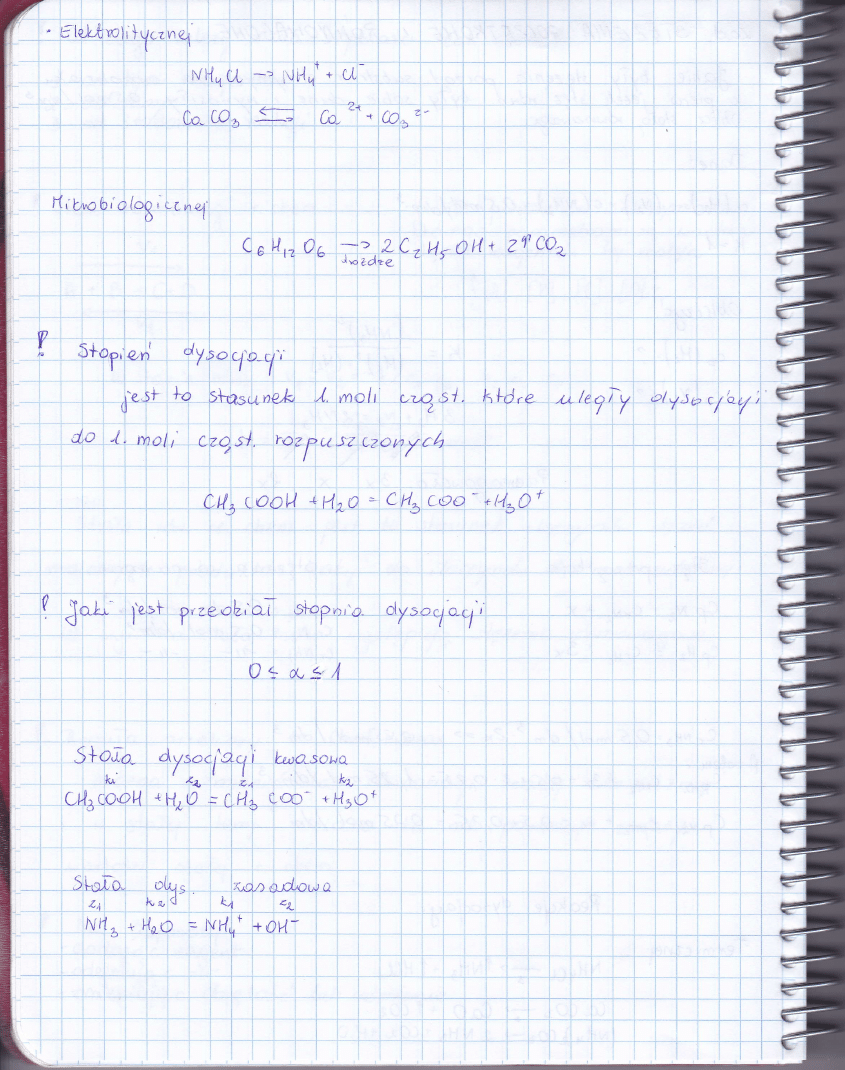 · Elektrolitycznej
NH₄Cl → NH₄⁺ + Cl⁻
CaCO₃ ⇆ Ca²⁺ + CO₃²⁻
Mikrobiologicznej
C₆H₁₂O₆ → 2C₂H₅OH + 2↑CO₂
drożdże
! Stopień dysocjacji
jest to stosunek l. moli cząst. które uległy dysocjacji
do l. moli cząst. rozpuszczonych
CH₃COOH + H₂O = CH₃COO⁻ + H₃O⁺
! Jaki jest przedział stopnia dysocjacji
0 ≤ α ≤ 1
Stała dysocjacji kwasowa
k₁ z₂ z₁ k₂
CH₃COOH + H₂O = CH₃COO⁻ + H₃O⁺
Stała dys. zasadowa
z₁ k₂ k₁ z₂
NH₃ + H₂O = NH₄⁺ + OH⁻